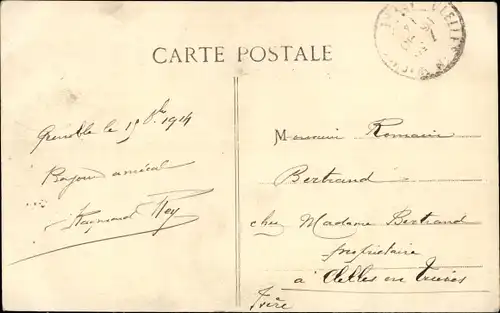 CARTE POSTALE
Grenoble le 15 1914
Bonjour amical
Raymond Rey
Monsieur Romain
Bertrand
chez Madame Bertrand
propriétaire
à Clelles en Trièves
Isère